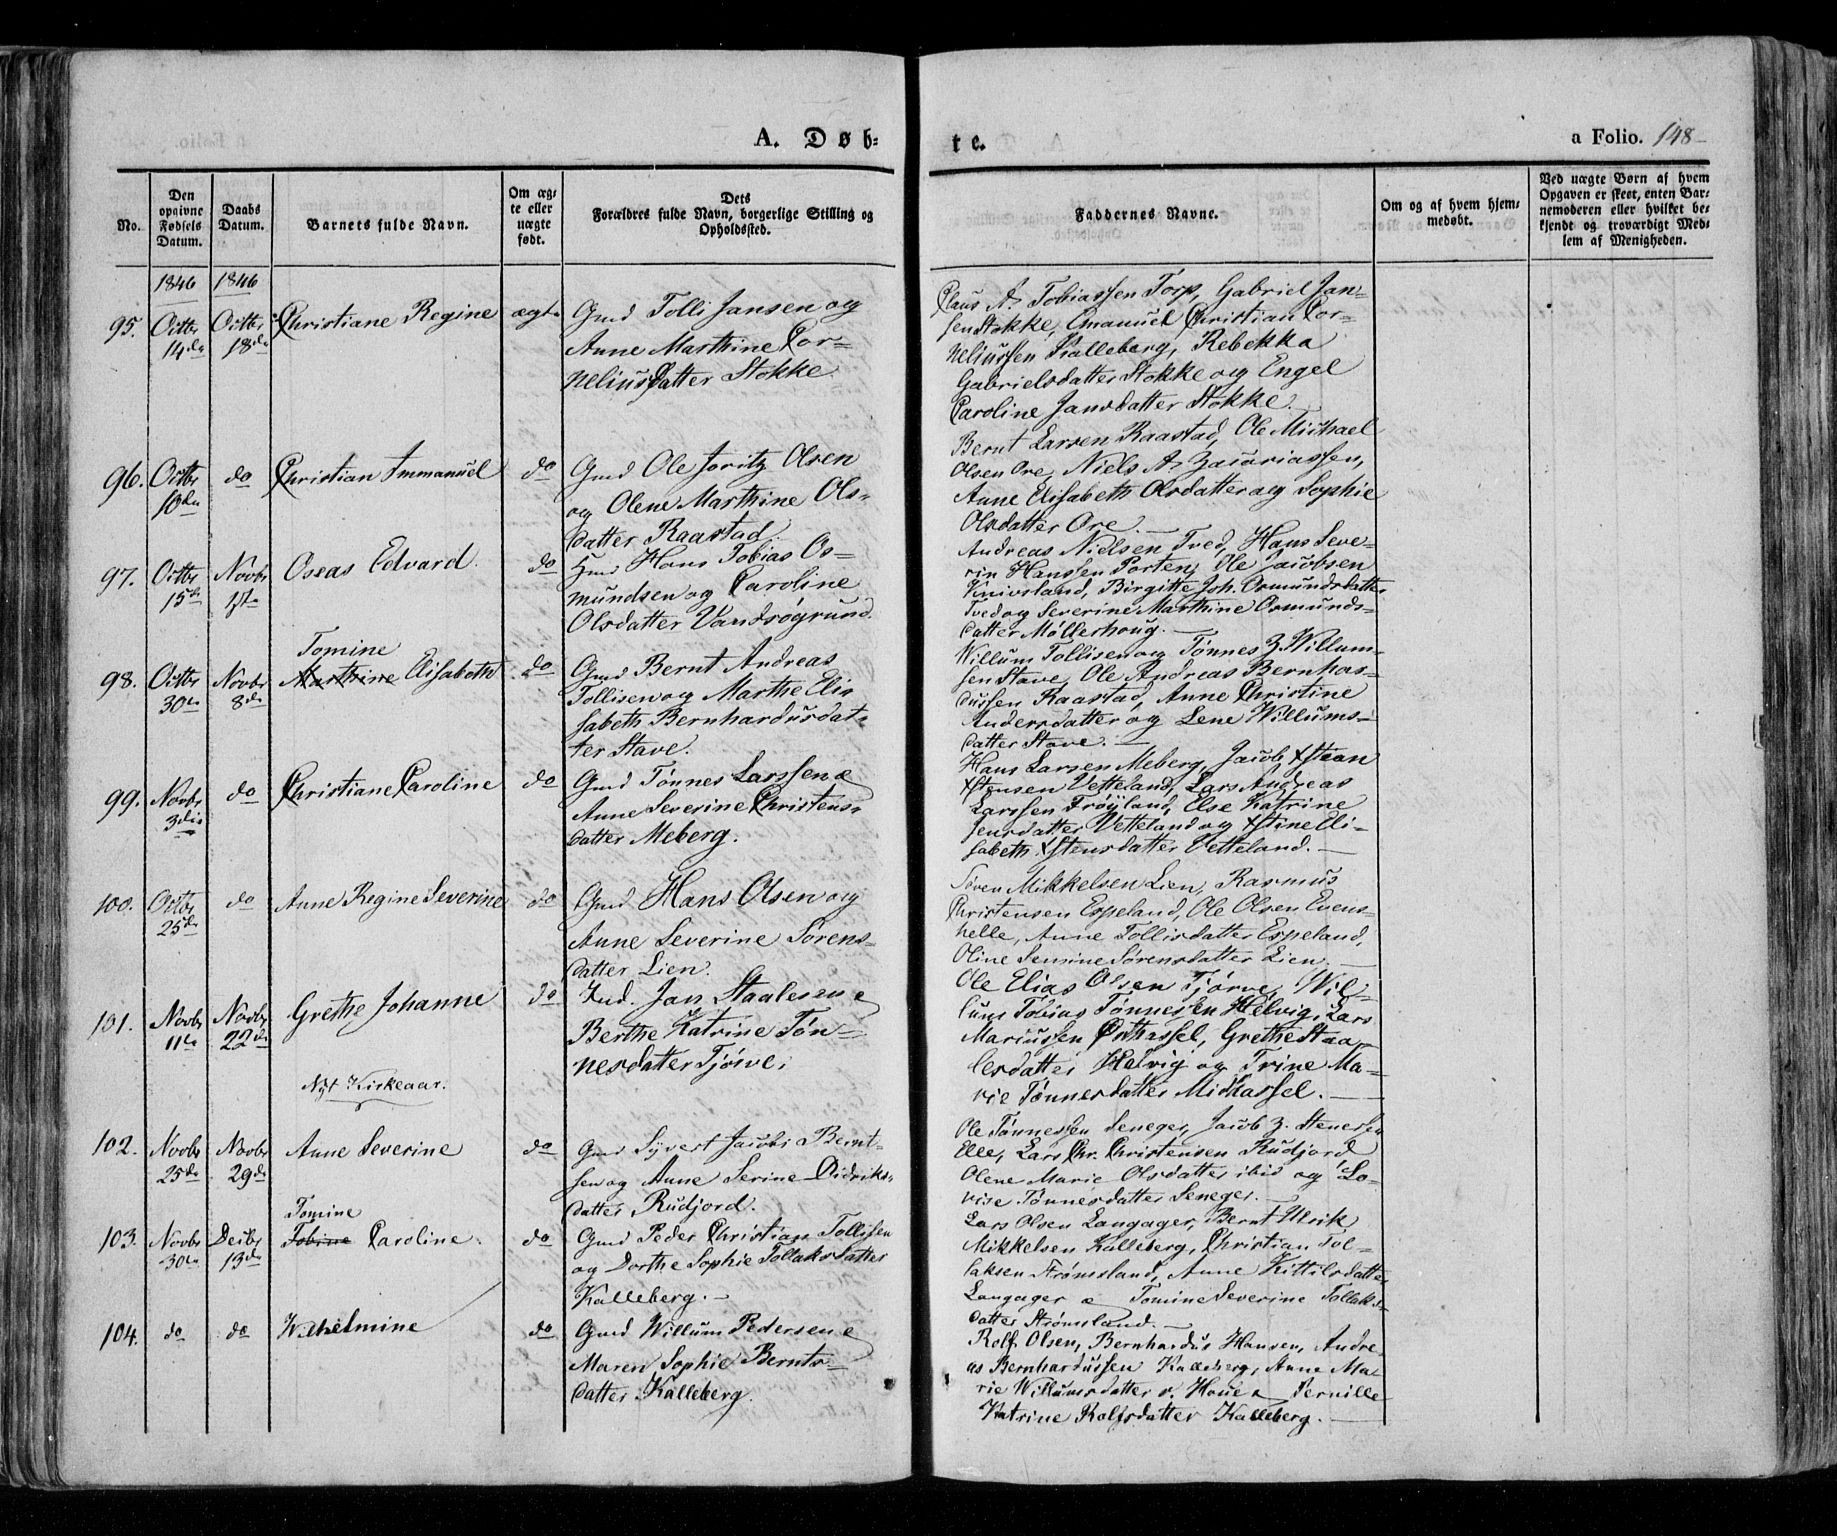 A. Døb-
te.
a Folio. 148
No.
Den opgivne Fødsels Datum.
Daabs Datum.
Barnets fulde Navn.
Om ægte eller uægte født.
Dets Forældres fulde Navn, borgerlige Stilling og Opholdssted.
Faddernes Navne.
Om og af hvem hjemmedøbt.
Ved uægte Børn af hvem Opgaven er skeet, enten Barnemoderen eller hvilket bekjendt og troværdigt Medlem af Menigheden.
1846 1846
95. Octbr 14de Octbr 18de Christiane Regine ægte
Gmd Tolli Jansen og
Anne Marthine Cor-
neliusdatter Stokke
Claus A. Tobiassen Torp, Gabriel Jan-
sen Stokke, Emanuel Christian Cor-
neliussen Kalleberg, Rebekka
Gabrielsdatter Stokke og Engel
Caroline Jansdatter Stokke.
96. Octbr 10de do Christian Immanuel do
Gmd Ole Joritz Olsen
og Olene Marthine Ols-
datter Raastad.
Bernt Larsen Raastad, Ole Michael
Olsen Ore, Niels A. Zacariassen,
Anne Elisabeth Olsdatter og Sophie
Olsdatter Ore.
97. Octbr 15de Novbr 1ste Oseas Edvard. do
Hmd Hans Tobias Os-
mundsen og Caroline
Olsdatter Vandsøgrund.
Andreas Nielsen Tved, Hans Seve-
rin Hanssen Porten, Ole Jacobsen
Knivsland, Birgitte Joh. Osmundsdatter
Tved og Severine Marthine Osmunds-
datter Møllerhoug.
98. Octbr 30te Novbr 8de
Tomine
Marthine Elisabeth do
Gmd Bernt Andreas
Tollisen og Marthe Eli-
sabeth Bernhardusdat-
ter Stave.
Willum Tollisen og Tønnes Z. Willum-
sen Stave, Ole Andreas Bernhar-
dussen Raastad, Anne Christine
Andersdatter og Lene Willums-
datter Stave.
99. Novbr 3die do Christiane Caroline do
Gmd Tønnes Larssen &
Anne Severine Christens-
datter Meberg.
Hans Larsen Meberg, Jacob
Vetteland, Lars Andreas
Larssen Frøyland, Else Katrine
Vetteland og Eli-
sabeth Vetteland.
100. Octbr 25de do Anne Regine Severine do
Gmd Hans Olsen og
Anne Severine Sørens-
datter Lien.
Søren Mikkelsen Lien, Rasmus
Christensen Espeland, Ole Olsen Evens-
helle, Anne Tollisdatter Espeland,
Oline Semine Sørensdatter Lien.
101. Novbr 11te Novbr 22de Grethe Johanne do
Ind. Jan Staalesen &
Berthe Katrine Tøn-
nesdatter Tjørve.
Ole Elias Olsen Tjørve, Wil-
lum Tobias Tønnessen Helvig, Lars
Mariussen Østhassel, Grethe Staa-
lesdatter Helvig og Trine Ma-
rie Tønnesdatter Midhassel.
Nyt Kirkeaar.
102. Novbr 25de Novbr 29de Anne Severine do
Gmd Syvert Jacob Bernt-
sen og Anne Serine Didriks-
datter Rudjord.
Ole Tønnessen Seneger, Jacob Z. Stenersen
Elle, Lars Chr. Christensen Rudjord
Olene Marie Olsdatter ibid og Lo-
vise Tønnesdatter Seneger.
103. Novbr 30te Decbr 13de
Tomine
Tobine Caroline. do
Gmd Peder Christian Tollisen
og Dorthe Sophie Tollaksdatter
Kalleberg.
Lars Olsen Langager, Bernt Ulrik
Mikkelsen Kalleberg, Christian Tol-
laksen Strømsland, Anne Kittilsdatter
Langager & Tomine Severine Tollaks-
datter Strømsland.
104. do do Wilhelmine do
Gmd Willum Pedersen &
Maren Sophie Bernts-
datter Kalleberg.
Rolf Olsen, Bernhardus Hansen, Andre-
as Bernhardussen Kalleberg, Anne Ma-
rie Willumsdatter v. Houe & Pernille
Katrine Rolfsdatter Kalleberg.